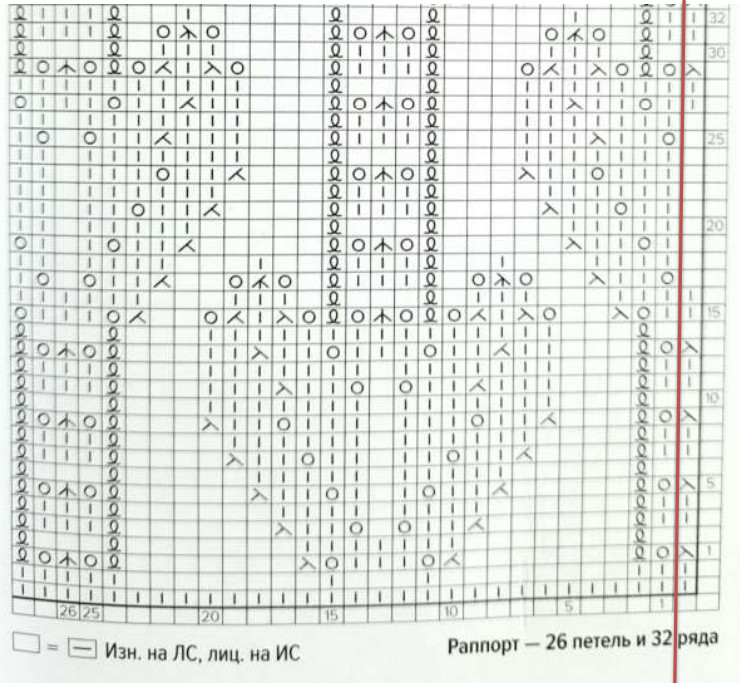 32
30
25
20
15
10
5
1
26 25 20 15 10 5 1
= Изн. на ЛС, лиц. на ИС
Раппорт — 26 петель и 32 ряда